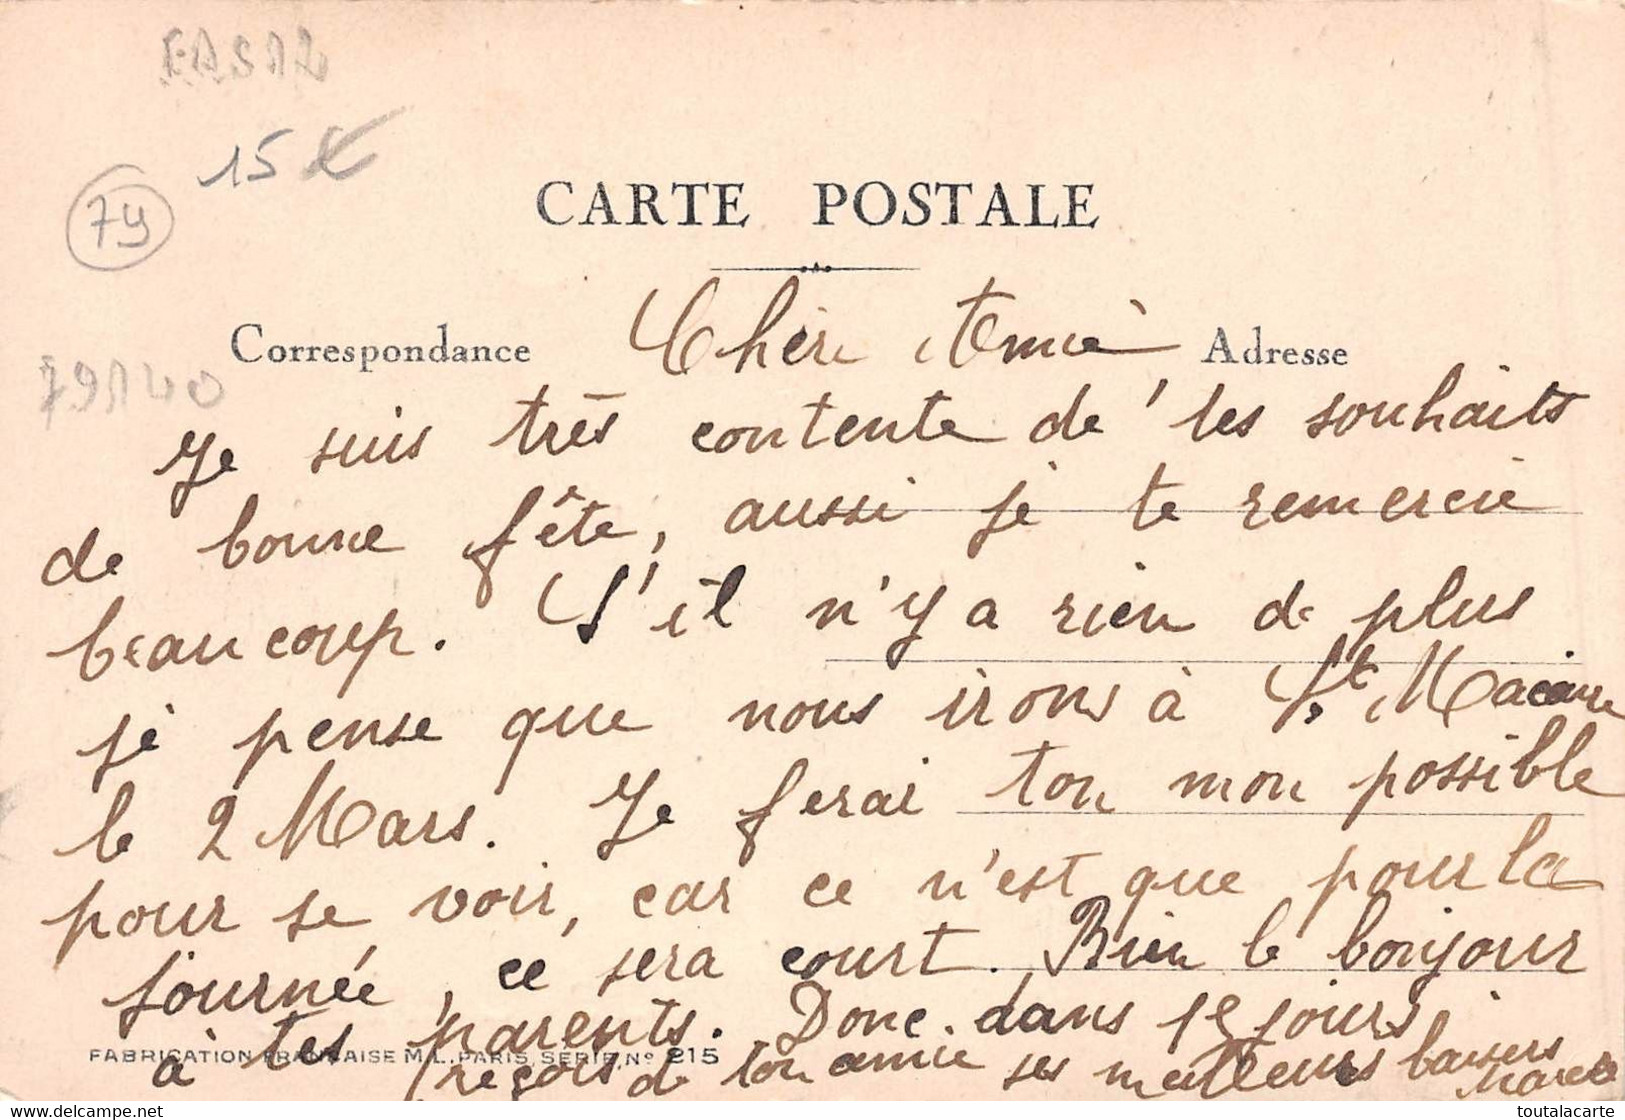 EAS12
15 €
79
CARTE POSTALE
Correspondance Chère Amie Adresse
79120
Je suis très contente de tes souhaits
de bonne fête, aussi je te remercie
beaucoup. S'il n'y a rien de plus
je pense que nous irons à St Macaire
le 2 Mars. Je ferai ton mon possible
pour se voir, car ce n'est que pour la
journée, ce sera court. Bien le bonjour
à tes parents. Donc dans jours
FABRICATION FRANÇAISE M.L. PARIS. SÉRIE Nº 215
reçois de ton amie ses meilleurs baisers
toutalacarte
The #1 marketplace for collectors on delcampe.net